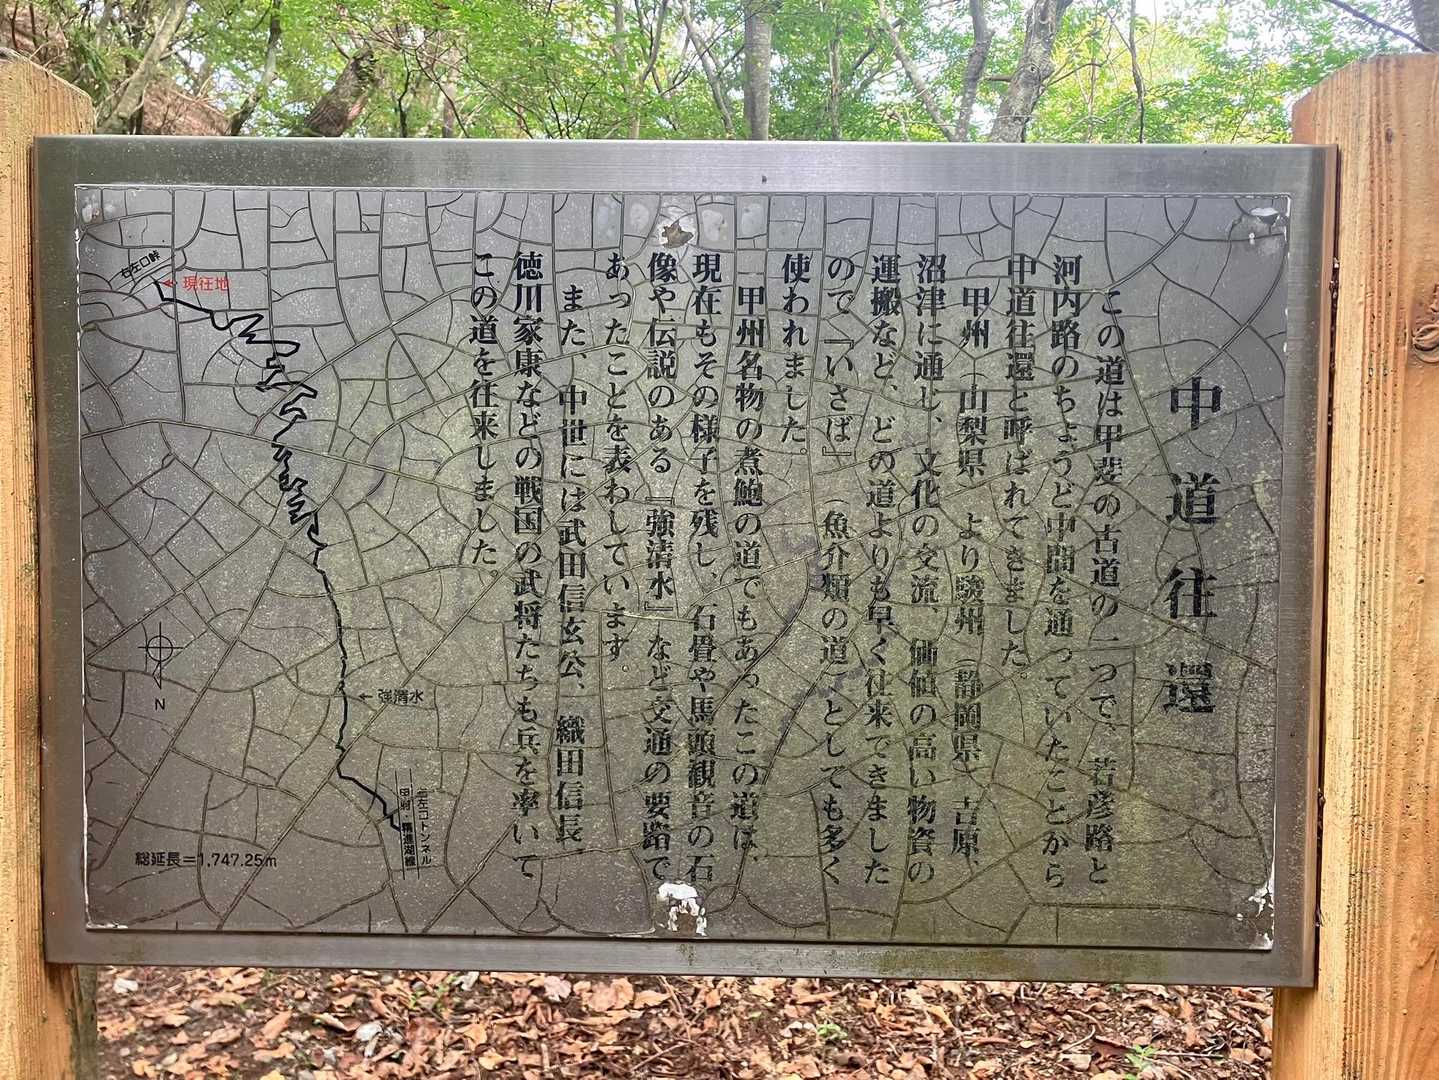 中道往還
この道は甲斐の古道の一つで、若彦路と
河内路のちょうど中間を通っていたことから
中道往還と呼ばれてきました。
甲州（山梨県）より駿州（静岡県）吉原、
沼津に通じ、文化の交流、価値の高い物資の
運搬など、どの道よりも早く往来できました
ので『いさば』（魚介類の道）としても多く
使われました。
甲州名物の煮鮑の道でもあったこの道は、
現在もその様子を残し、石畳や馬頭観音の石
像や伝説のある『強清水』など交通の要路で
あったことを表わしています。
また、中世には武田信玄公、織田信長、
徳川家康などの戦国の武将たちも兵を率いて
この道を往来しました。
右左口峠
現在地
強清水
右左口トンネル
甲府・精進湖線
N
総延長＝1,747.25m